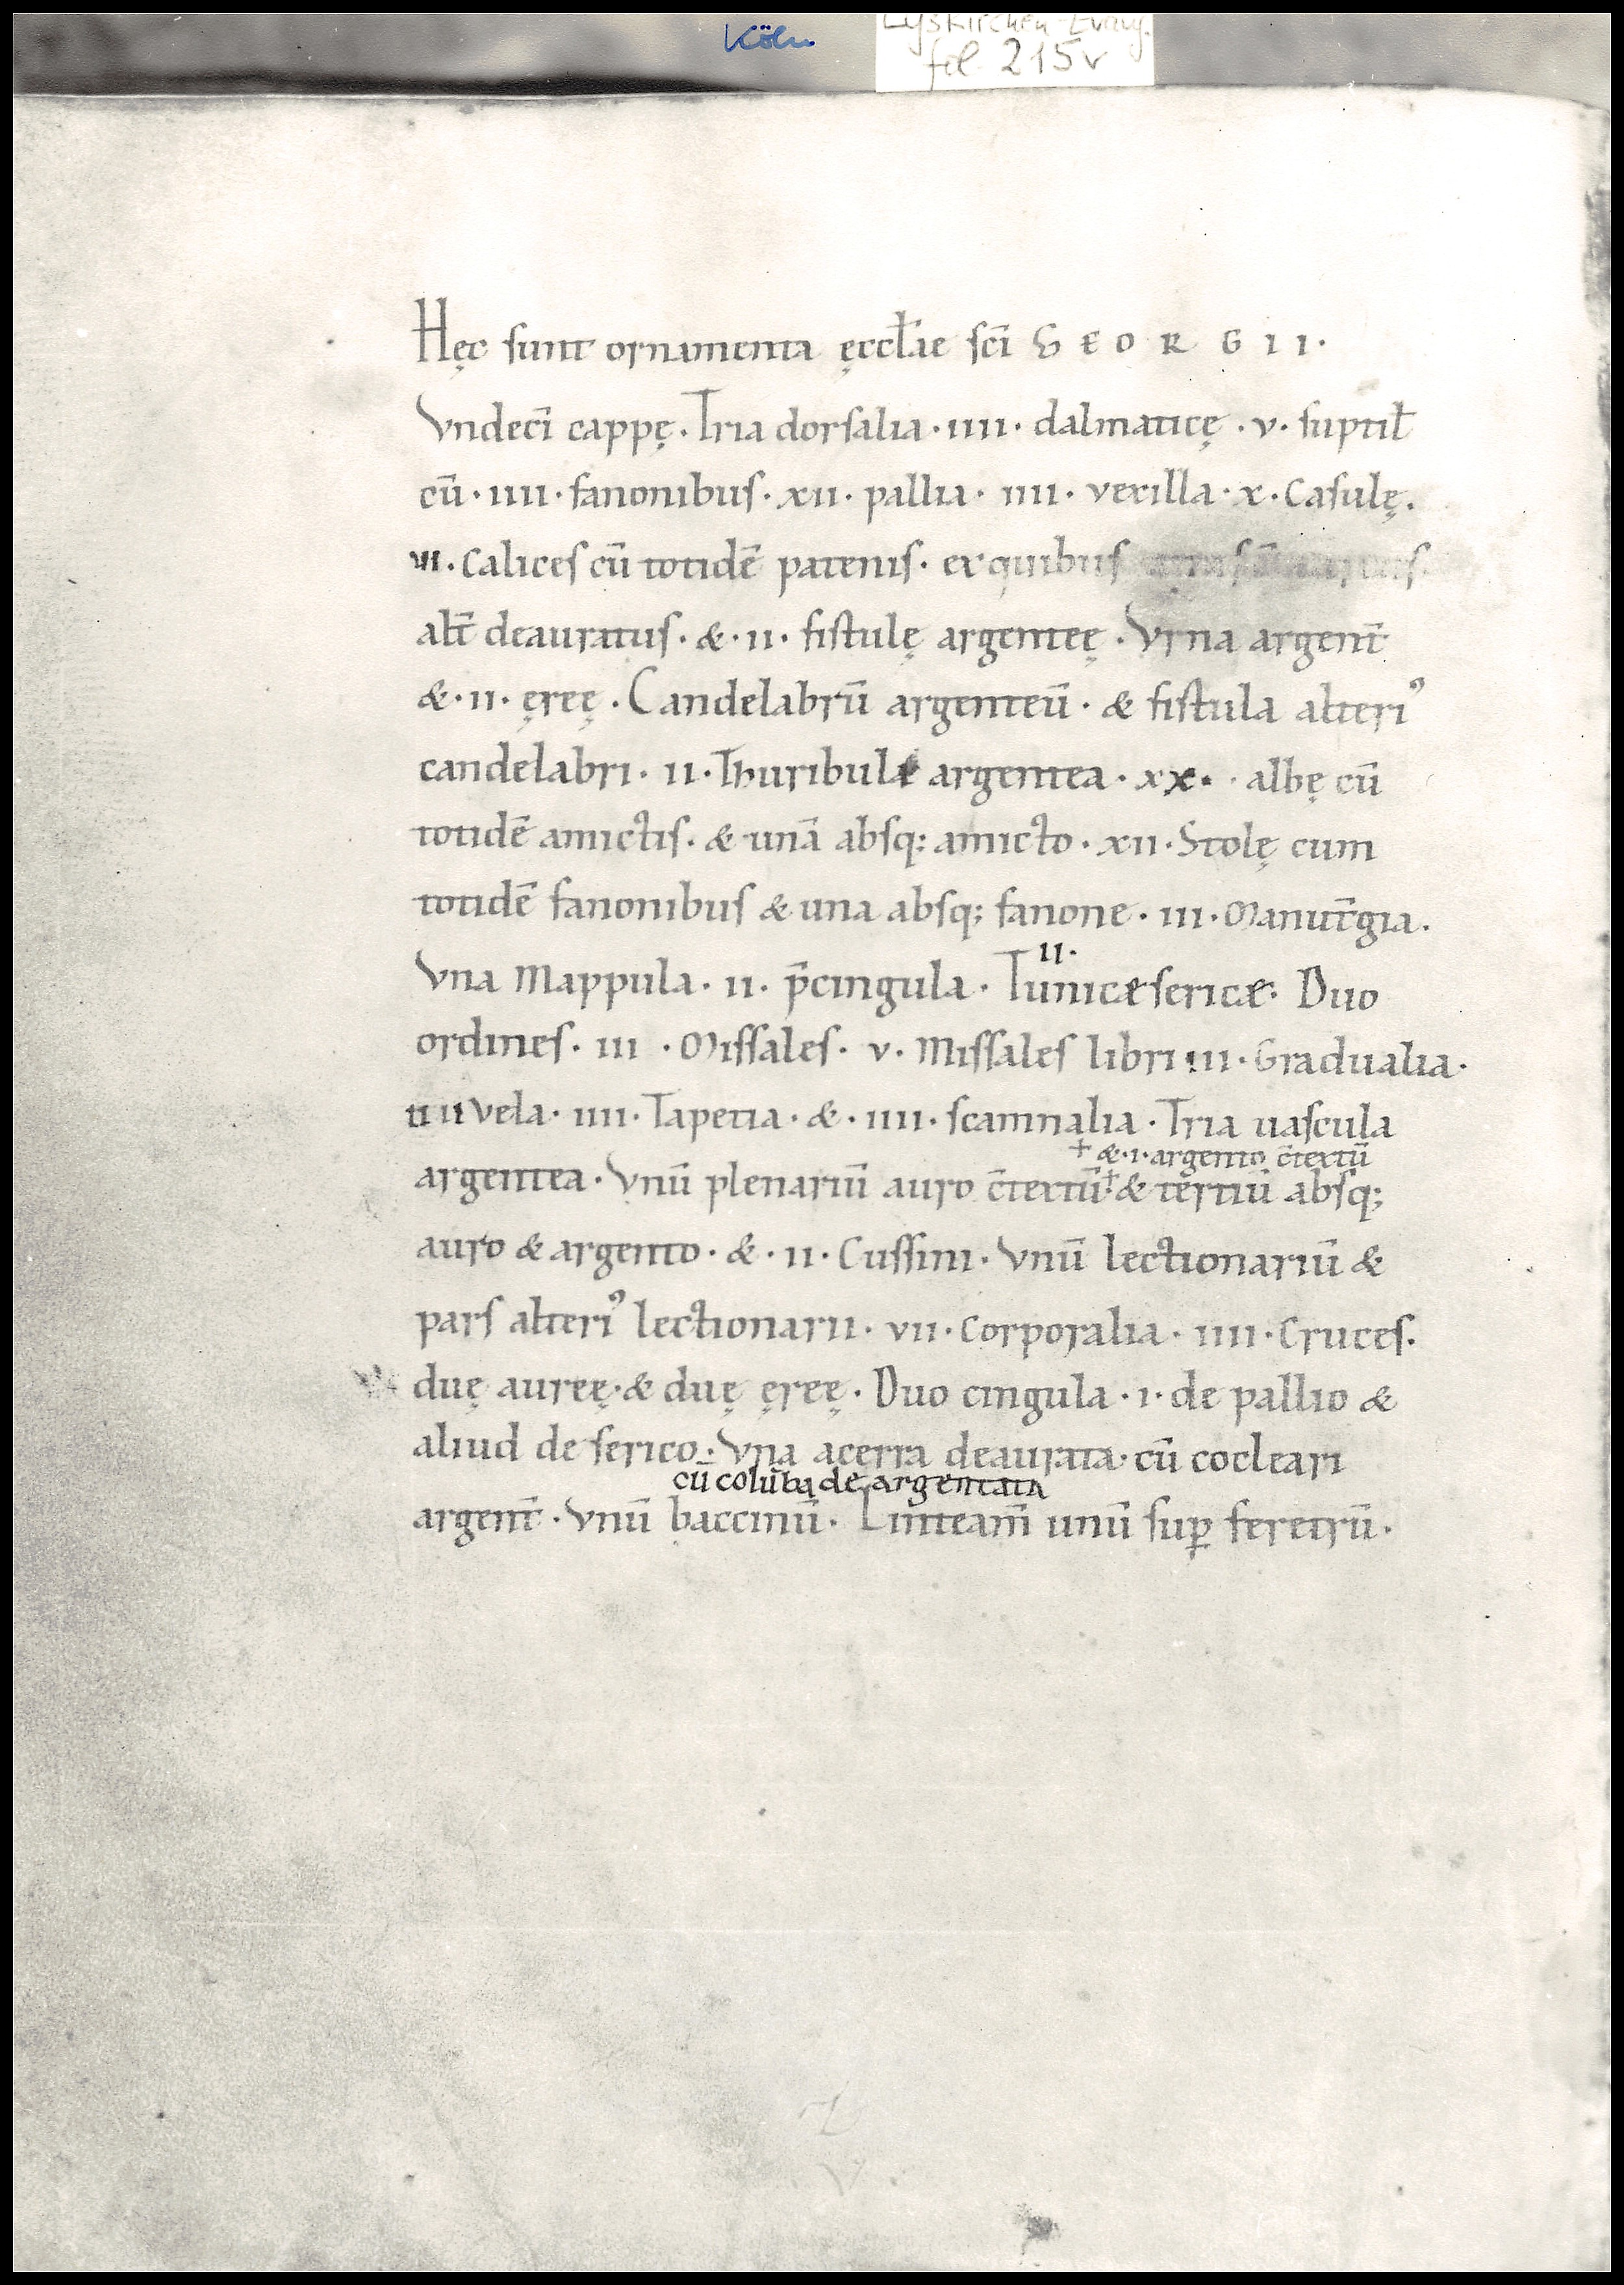 Köln
Lyskirchen-Evang.
fol. 215v
Hęc sunt ornamenta ęccl̄ie sc̄i GEORGII·
Vndecī cappę. Tria dorsalia· IIII· dalmaticę · v· suptil̄
cū· IIII· fanonibus· XII· pallia· IIII· vexilla· x· Casulę.
VII. Calices cū totidē patenis· ex quibus
alt̄ deauratus· &· II· fistulę argenteę · Vrna argent̄
&· II· ęreę · Candelabrū argenteū· & fistula alteriꝰ
candelabri· II· Thuribula argentea· xx· · albę cū
totidē amictis· & unā absq; amicto· XII· Stolę cum
totidē fanonibus & una absq; fanone· III· Manut̄gia.
II·
Vna Mappula· II· p̄cingula· Tunicæ sericæ· Duo
ordines· III · Missales· v· Missales libri IIII· Gradualia·
IIII vela· IIII· Tapetia· &· IIII· scamnalia· Tria uascula
+ &·I·argento c̄textū
argentea· Vnū plenariū auro c̄textū·+ & tertiū absq;
auro & argento· &· II· Cussini· Vnū lectionariū &
pars alteriꝰ lectionarii· VII· Corporalia· IIII· Cruces.
duę aureę·& duę ęreę· Duo cingula·I· de pallio &
aliud de serico· Vna acerra deaurata· cū cocleari
cū colūba de argentata
argent̄· Vnū baccinū· Linteam̄ unū suꝑ feretrū·